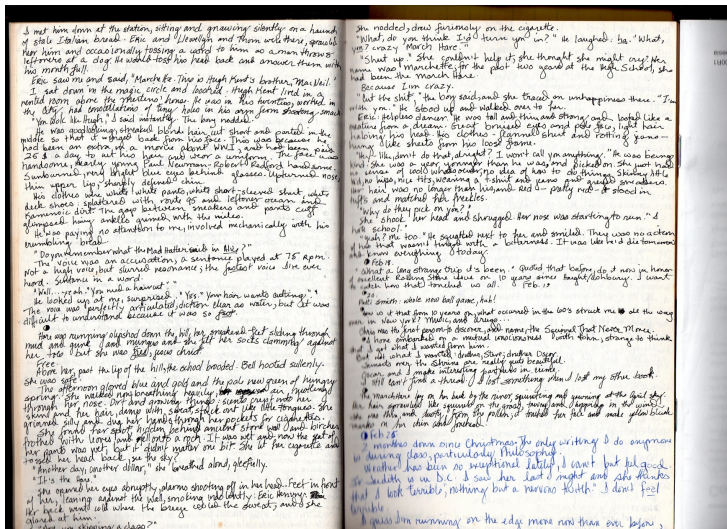 I met him down at the station, sitting and gnawing silently on a haunch
of stale Italian bread. Eric and Llewellyn and Thom were there, sprawled
near him and occasionally tossing a word to him as a man throws
leftovers at a dog. He would toss his head back and answer them with
his mouth full.
Eric saw me and said, "March Hare. This is Hugh Kent's brother, MacNeil."
I sat down in the magic circle and looked. Hugh Kent lived in a
rented room above the
"You look like Hugh," I said instantly. The boy nodded.
He was goodlooking, streaked blond hair, cut short and parted in the
middle so that it winged back from his face. This was because he
had been an extra in a movie about WWI, and had been paid
25$ a day to cut his hair and wear a uniform. The face was
handsome, clearly young Paul Newman-Robert Redford handsome.
Sunburned, very bright blue eyes behind glasses. Upturned nose,
thin upper lip, sharply defined chin.
His clothes were white: white pants, white short-sleeved shirt, white
deck shoes splattered with route 95 and leftover ocean and
dirt. The gap between sneakers and pants cuff
glimpsed him: ankles grimed with the miles.
He was paying no attention to me, involved mechanically with his
crumbling bread.
"Do you remember what the Mad Hatter said in Alice?"
The voice was an accusation, a sentence played at 78 rpm.
Not a high voice, but slurred resonance, the fastest voice I'm ever
heard. Sentence in a word.
"Well.. yeah. 'You need a haircut.'"
He looked up at me, surprised. "Yes. 'Your hair wants cutting.'"
The voice was perfectly articulated, diction clear as water, but it was
difficult to understand because it was so fast.
Hare was running slipshod down the hill, her sneakered feet sliding through
mud and and she felt her socks clammy against
her, told but she was free, jesus christ
Free.
Above her, past the lip of the hill, the school brooded. Bell hooted sullenly.
She was safe.
The afternoon glowed blue and gold and the pale new green of hungry
spring. She walked nonbreathing heavily, air whistling
through her nose. Dirt and growing things' scents crept into her
skin and her hair, damp with sweat, stuck out like little tongues. She
grinned silly and dug her hands through her pockets for cigarettes.
She found her spot, hidden behind ancient stone wall and birches
frothed with leaves, and fell onto a rock. It was wet and now the seat of
her pants was wet, but it didn't matter one bit. She lit her cigarette and
tossed her head back, see the sky?
"Another day, another dollar," she breathed aloud, gleefully.
"It's the Hare."
She opened her eyes abruptly, alarms shooting off in her head. Feet in front
of him, leaning against the wall, smoking Eric, Hungry.
Her back went cold where the breeze chilled the sweat, and she
glared at him.
She nodded, drew furiously on the cigarette.
"What, do you think I'd turn you in?" He laughed: ha. "What,
you? crazy March Hare."
"Shut up." She couldn't help it; she thought she might cry. Her
name was Marchette; for the past two years at the High School, she
had been the March Hare.
Because I'm crazy.
"Cut the shit," the boy said, and she traced an unhappiness there. "I'm
with you." He stood up and walked over to her.
Eric: Helpless dancer. He was tall and thin and strong and looked like a
creature from a dream. Great bruised eyes and pale face, light hair
haloing his head like clothes - learned shirt and rotting jeans -
hung like sheets from his loose frame.
"Hey, like, don't do that, alright? I won't call you anything." He was being
kind: she was a year younger than he was, and picked on. She just had
no sense of social whatsoever; no idea of how to do things. Skinny little
kid, no hips, nice tits, wearing a t-shirt and jeans and greyed sneakers.
Her hair was no longer than his, and red - pretty red - it stood in
tufts and matched her freckles.
"Why do they pick on you?"
She shook her head and shrugged. Her nose was starting to run. "I
hate school."
"Yeah? Me too." He squatted next to her and smiled. There was no action
of his that wasn't tinged with a bitterness. It was like he'd die tomorrow
and knew everything today.
Feb 18.
"What a long strange trip it's been." Quoted that before, do it now in honor
of excellent Rolling Stone issue on 10 years since haight/ashbury. I want
to catch how that touched us all. Feb. 19
20.
Patti Smith: whole new ball game, huh!
How is it that from 10 years on, what occurred in the 60's struck me the way
ever in new york? Music, and drugs...
Chris was the first person to discover, and name, the Squirrel That Never Moves.
I home embarked on a mutual unconsciousness. Darth John, strange to think
that I got what I wanted from him.
But got what I wanted: brother, Steve; brother Oscar.
Sunsets over the Shrine are really quite beautiful.
Oscar and I make interesting partners in crime.
I still can't find a thread; I lost something when I lost my other book.
The marchhare lay on her back by the river, squinting and grinning at the April sky.
Her hair sprawled like squirrels on the grass,
into one thin
marks on her chin and forehead.
Feb 25
2 months down since Christmas. The only writing I do anymore
is during class, particularly Philosophy.
Weather has been so exceptional lately, I can't but feel good.
Judith is in D.C. I saw her last night and she thinks
that I look terrible; nothing but a nervous truth. I don't feel
terrible.
I guess I'm running on the edge more now than ever before.